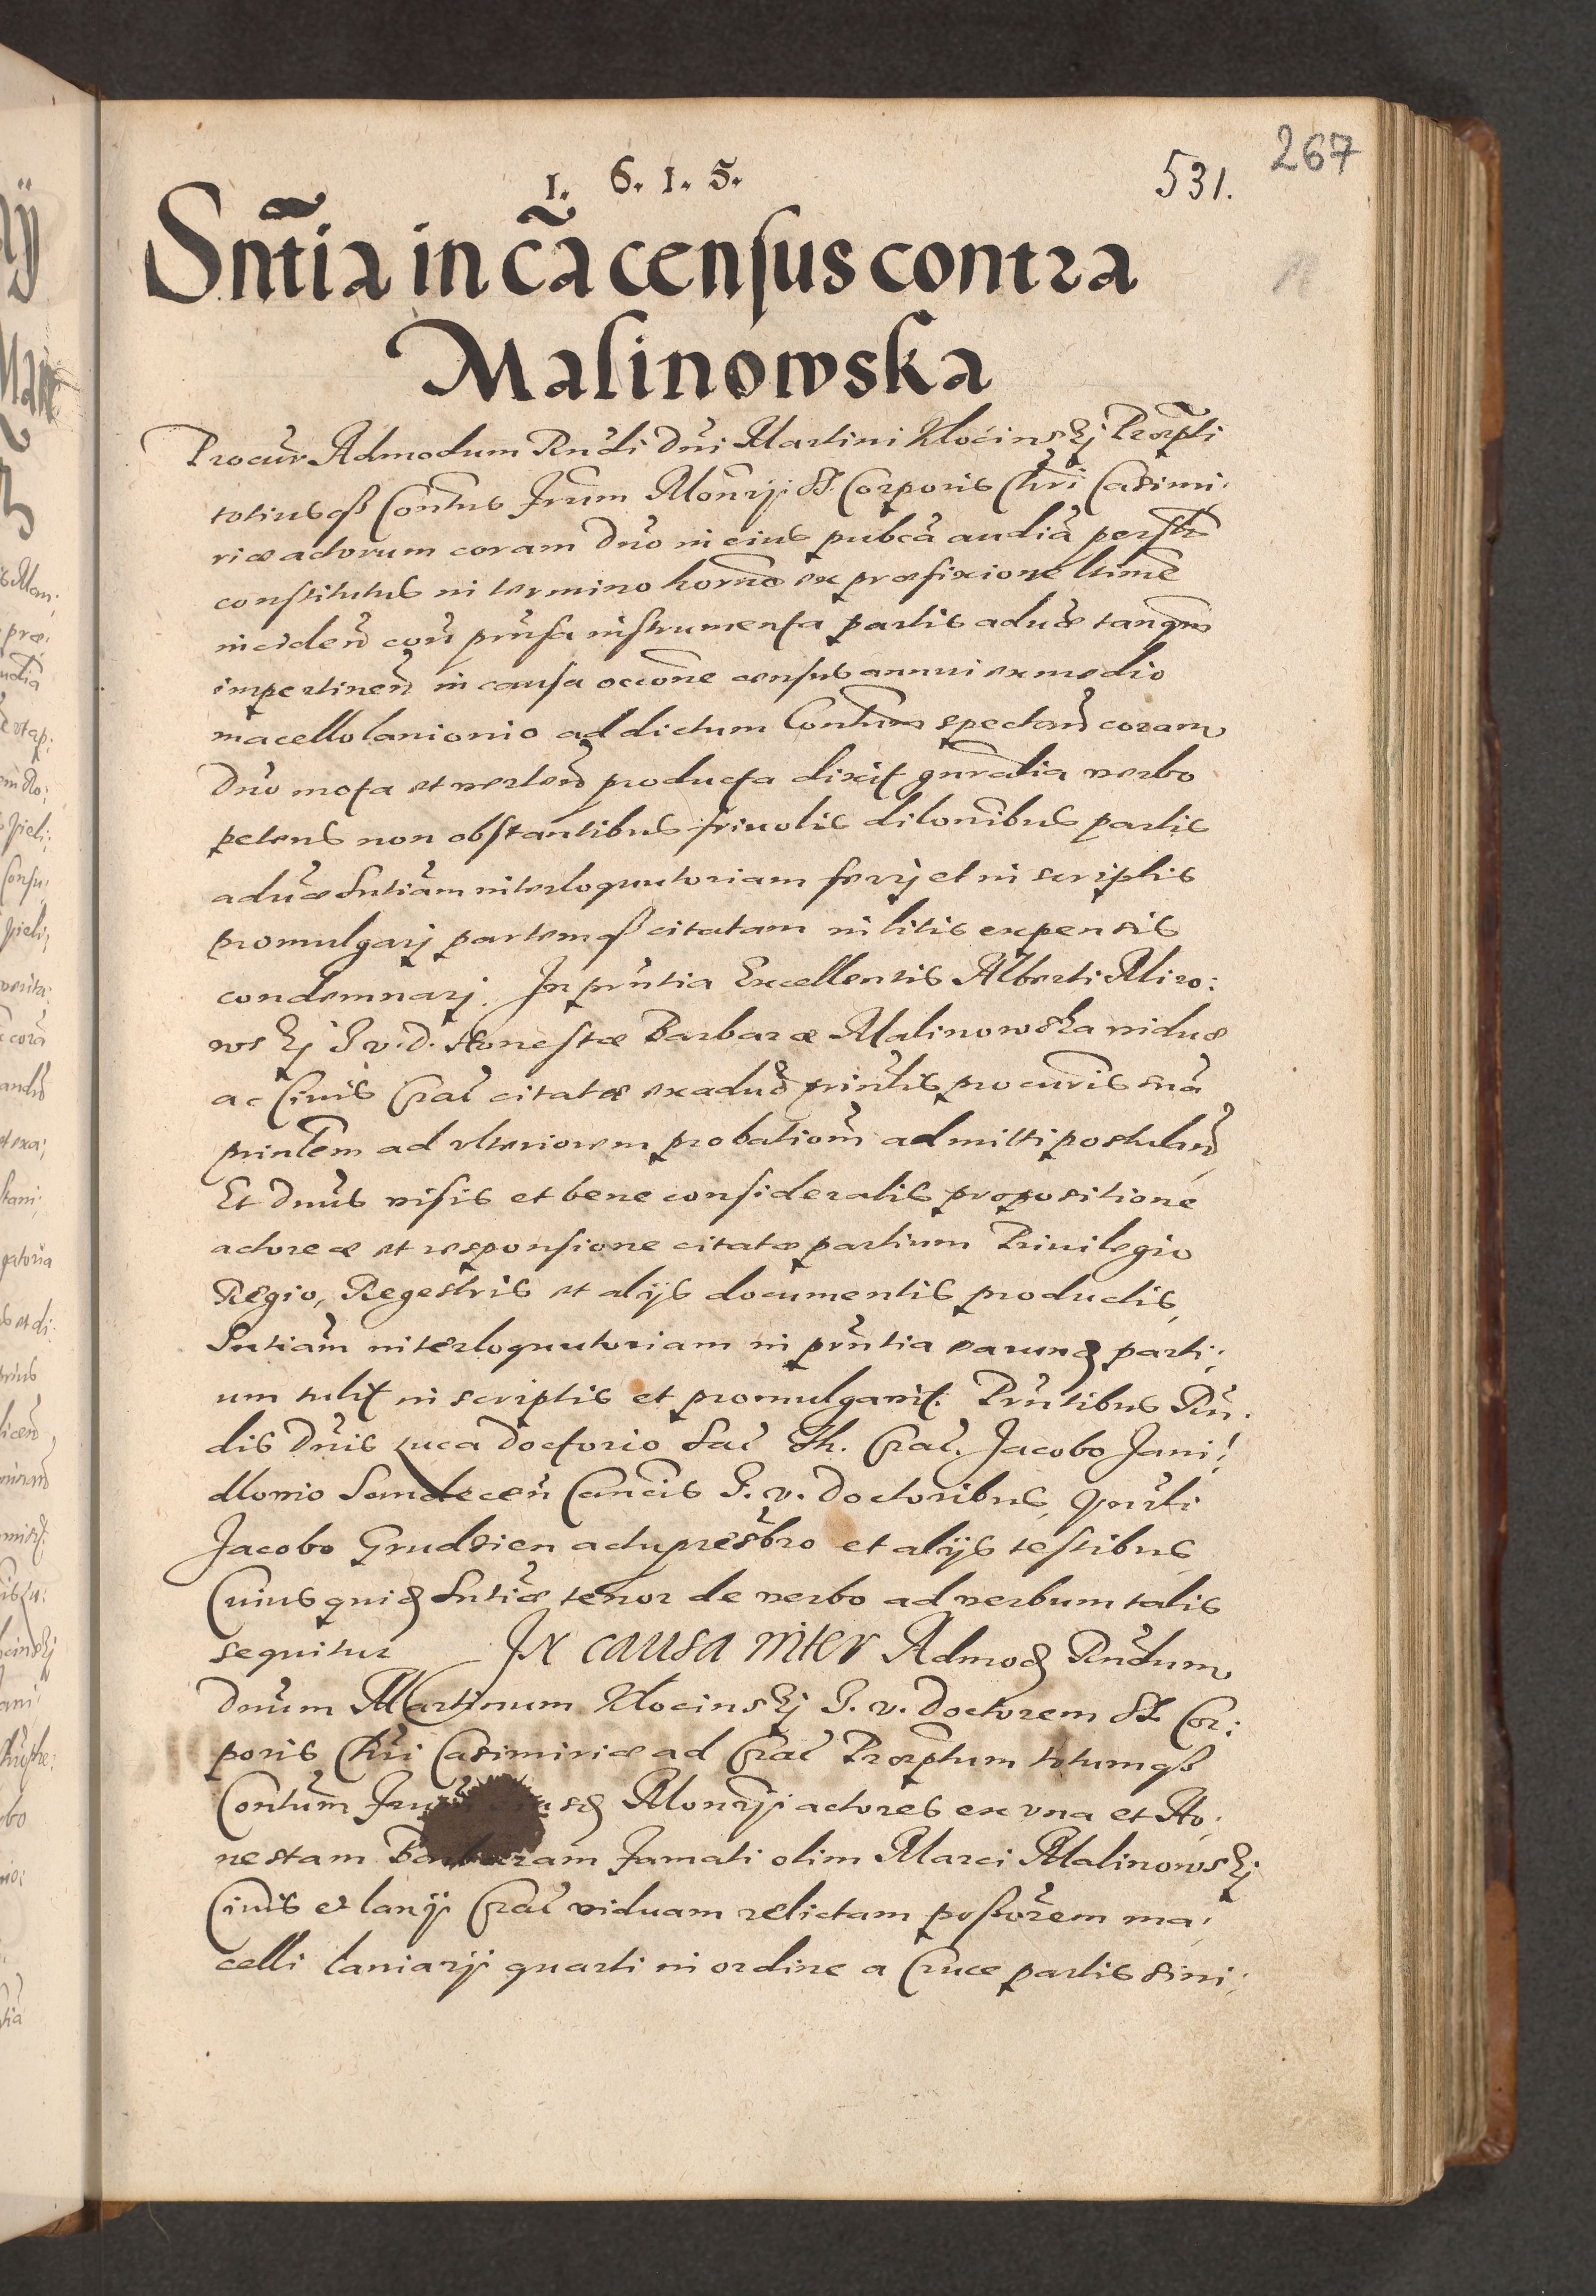 267
531.
1. 6. 1. 5.
Snt̃ia in cã census contra
Malinowska
Procur̃ Admodum Rndi Dni Martini Kłocinskj Præpti
totiusq₃ Contus frum Monrij SS. Corporis Chri Casimi:
riæ actorum coram Dno in eius pubca audia persltr
constitutus in termino horno ex præfixione ltime
inciden con pnsa instrumenta partis aduæ tanqm
impertinen in causa occone census annui ex medio
macello lanionio ad dictum Contum spectan coram
Dno mota et verten producta dixit gnralia verbo
petens non obstantibus friuolis dilonibus partis
aduæ Sntiam interloquutoriam ferrj et in scriptis
promulgarj partemq₃ citatam in litis expensis
condemnarj. In pntia Excellentis Alberti Miro:
wskj J. v. D. Honestæ Barbaræ Malinowska viduæ
ac Ciuis Crac citatæ ex aduo prinlis procuris sua
prinlem ad vlteriorem probationm admitti postulan
Et Dnus visis et bene consideratis propositione
actoreæ et responsione citatæ partium Priuilegio
Regio, Regestris et alijs documentis productis,
Sntiam interloquutoriam in pntia earund parti:
um tulit in scriptis et promulgauit. Pntibus Rn:
dis Dnis Luca Doctorio Sac Th. Crac. Jacobo Jani:
dlowio Sandecen Cancis J. v. Doctoribus,
Jacobo Grudzien actu presbro et alijs testibus
Cuius quid Sntiæ tenor de verbo ad verbum talis
sequitur In causa inter Admod Rndum
Dnum Martinum Kłocinskj J. v. Doctorem SS. Cor:
poris Chri Casimiriæ ad Crac Præptum totumq₃
Contum Monrij actores ex vna et Ho:
nestam Barbaram famati olim Marci Malinowskj
Ciuis et lanij Crac viduam relictam possorem ma:
celli laniarij quarti in ordine a Cruce partis sini: